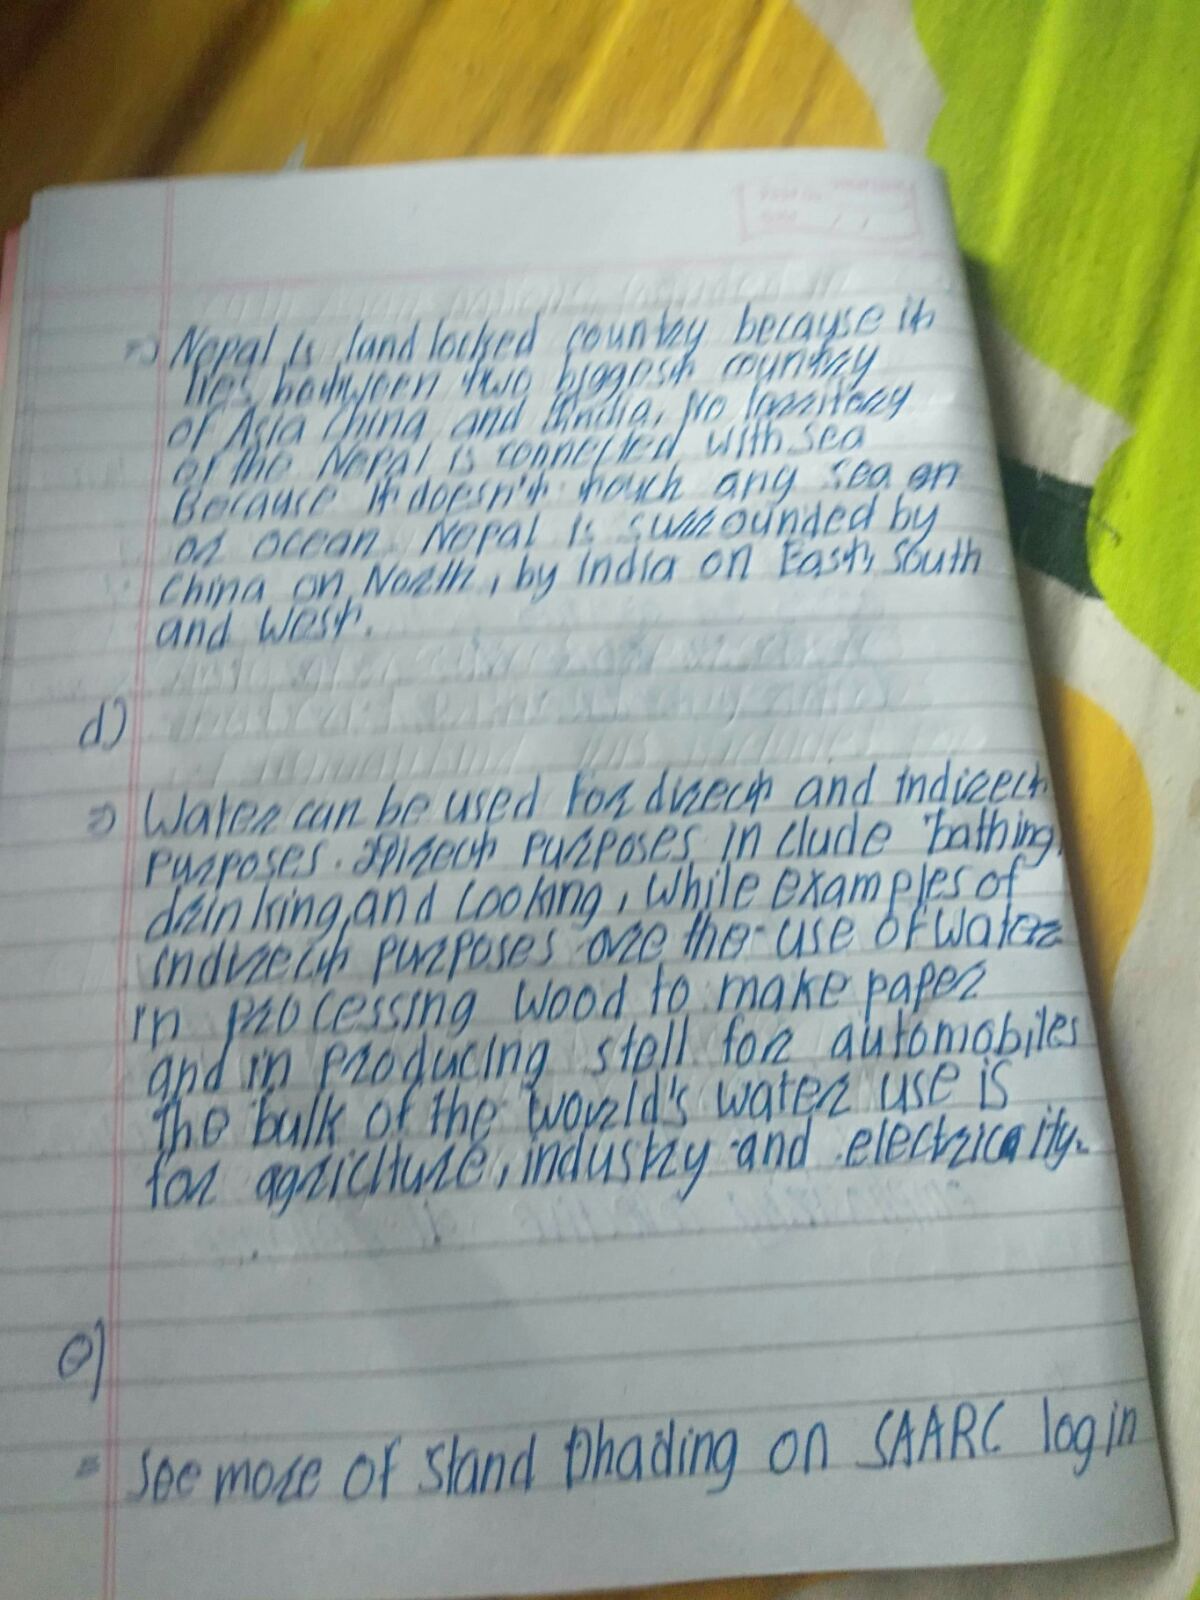 => Nepal is land locked country because it
lies between two biggest country
of Asia China and India, No territory
of the Nepal is connected with sea
Because it doesn't touch any sea or
or ocean. Nepal is surrounded by
China on North, by India on East, South
and West.
d)
=> Water can be used for direct and indirect
purposes. Direct purposes in clude bathing,
drinking, and cooking, while examples of
indirect purposes are the use of water
in processing wood to make paper
and in producing stell for automobiles
The bulk of the world's water use is
for agriclture, industry and electricity.
e)
= See more of Stand Dhading on SAARC log in